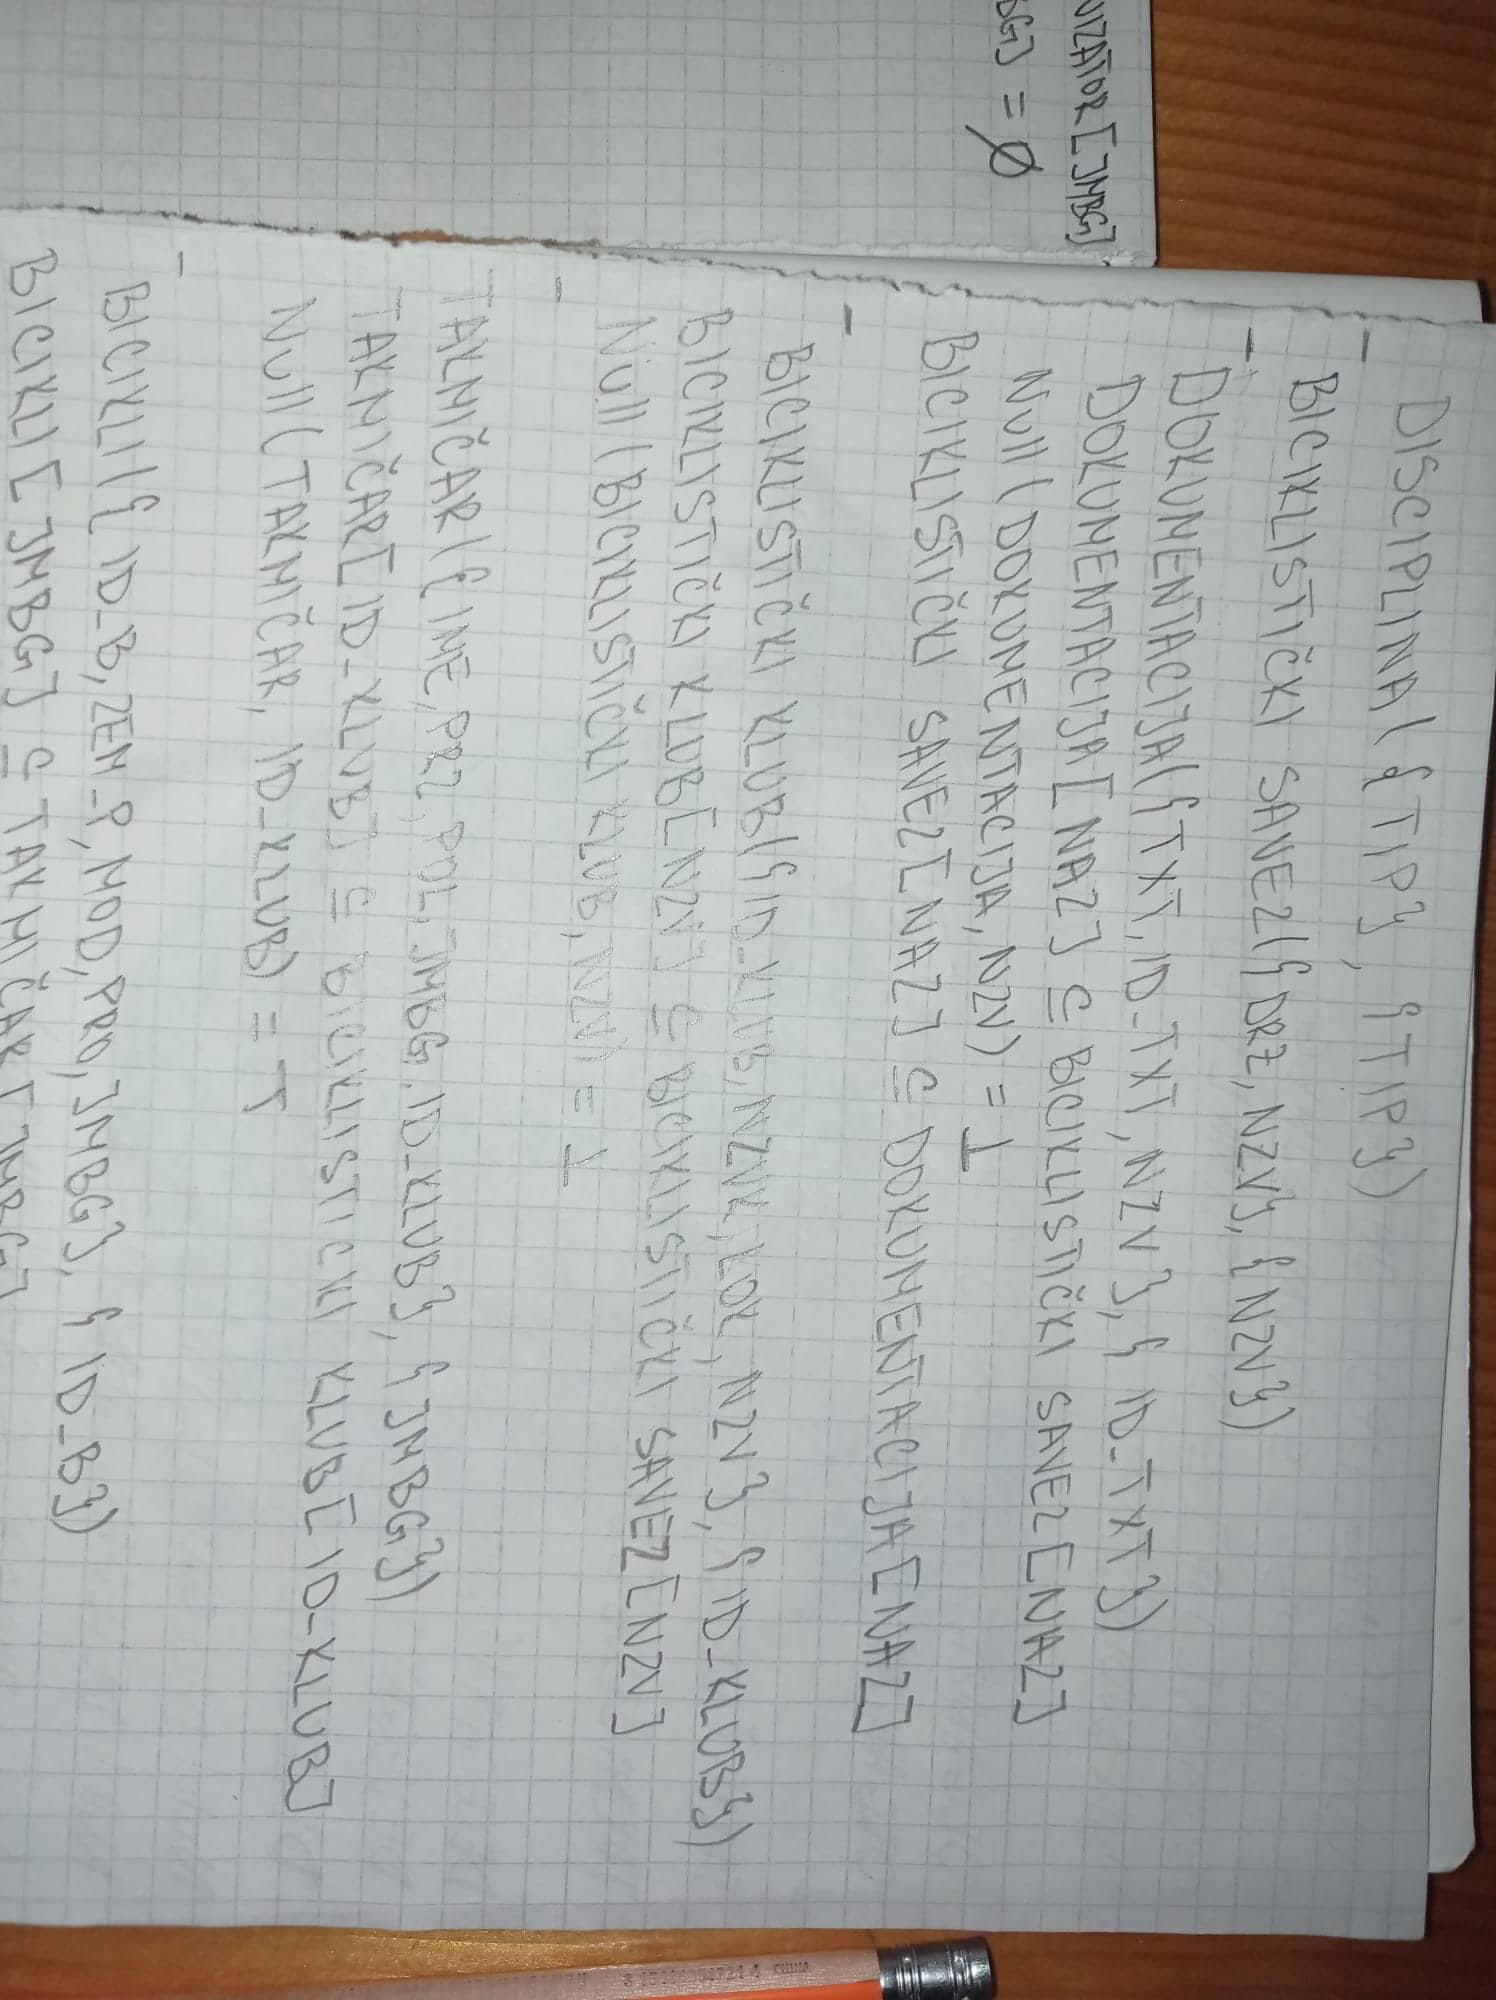 NIZATOR[JMBG]
BG] = Ø
- DISCIPLINA({TIP}, {TIP})
- BICIKLISTIČKI SAVEZ({DRZ, NZV}, {NZV})
- DOKUMENTACIJA({TXT, ID-TXT, NZV}, {ID-TXT})
DOKUMENTACIJA[NAZ] ⊆ BICIKLISTIČKI SAVEZ[NAZ]
Null(DOKUMENTACIJA, NZV) = ⊥
BICIKLISTIČKI SAVEZ[NAZ] ⊆ DOKUMENTACIJA[NAZ]
- BICIKLISTIČKI KLUB({ID-KLUB, NZVK, LOK, NZV}, {ID-KLUB})
BICIKLISTIČKI KLUB[NZV] ⊆ BICIKLISTIČKI SAVEZ[NZV]
Null(BICIKLISTIČKI KLUB, NZV) = ⊥
- TAKMIČAR({IME, PRZ, POL, JMBG, ID-KLUB}, {JMBG})
TAKMIČAR[ID-KLUB] ⊆ BICIKLISTICKI KLUB[ID-KLUB]
Null(TAKMIČAR, ID-KLUB) = T
- BICIKLI({ID-B, ZEM-P, MOD, PRO, JMBG}, {ID-B})
BICIKLI[JMBG] ⊆ TAKMIČAR[JMBG]
8 CHINA